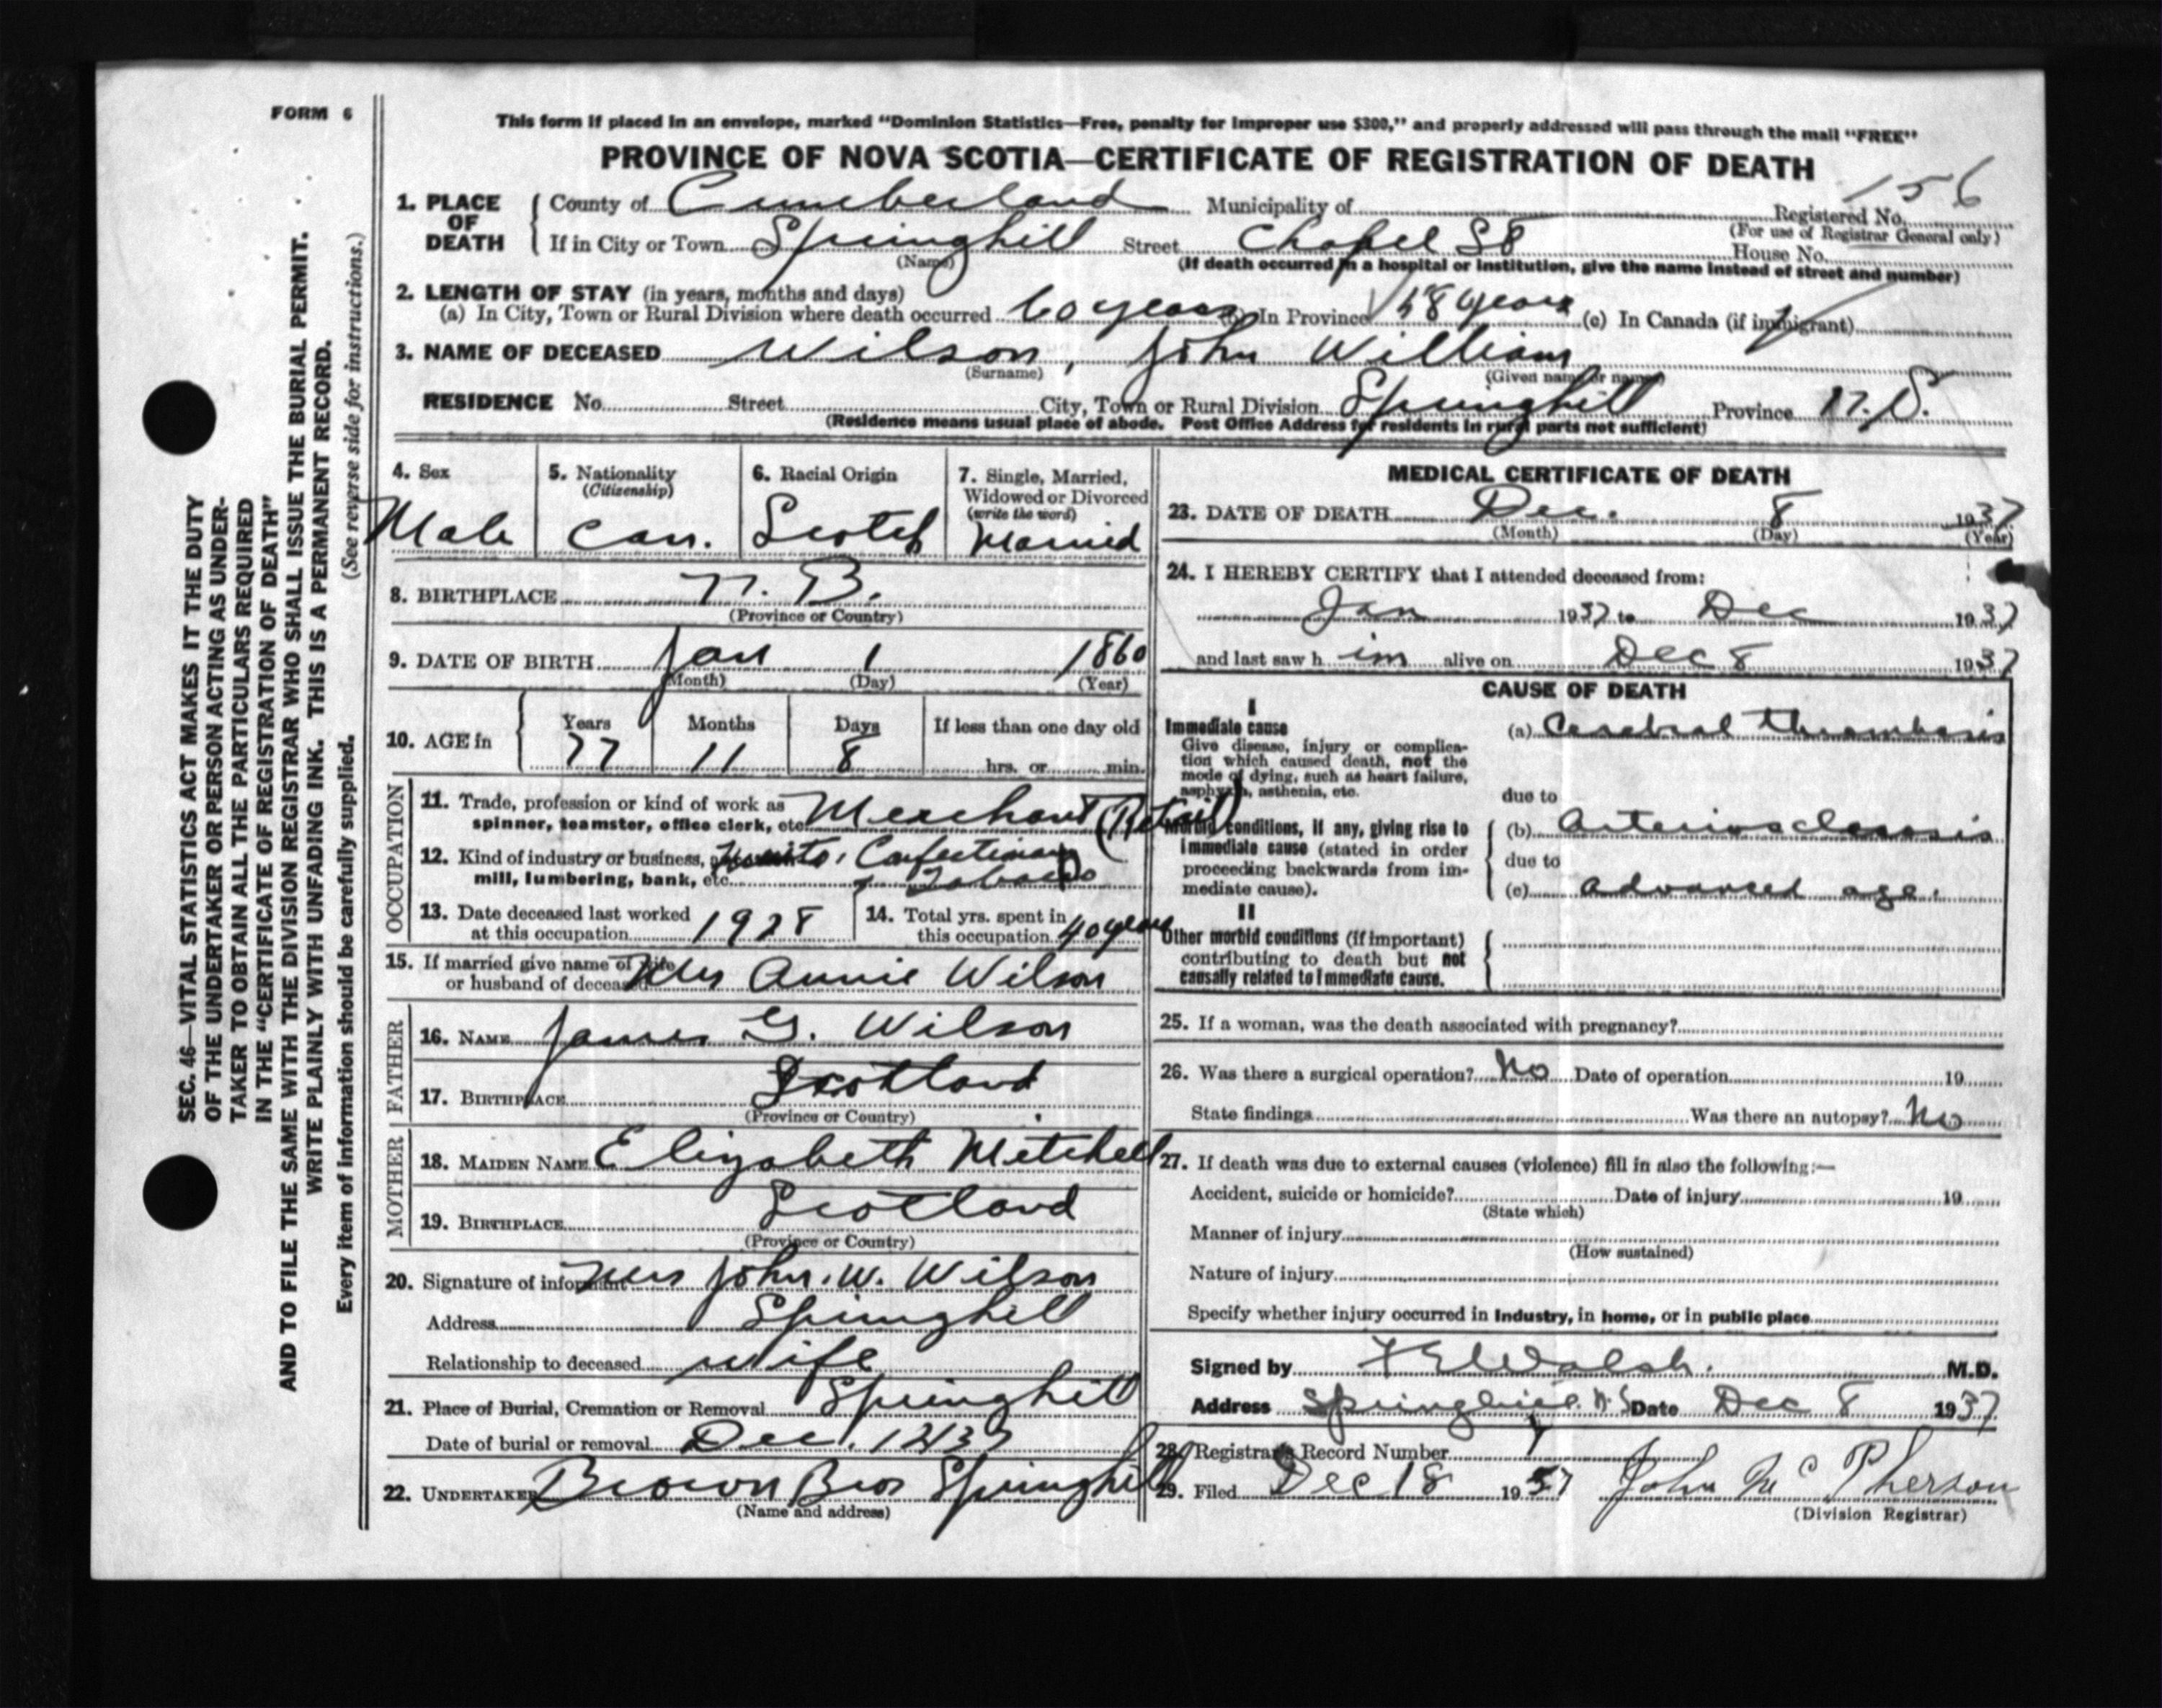 FORM 6
This form if placed in an envelope, marked "Dominion Statistics—Free, penalty for improper use $300," and properly addressed will pass through the mail "FREE"
PROVINCE OF NOVA SCOTIA—CERTIFICATE OF REGISTRATION OF DEATH
156
1. PLACE OF DEATH { County of Cumberland Municipality of Registered No.
(For use of Registrar General only)
If in City or Town Springhill Street Chapel St House No.
(Name) (If death occurred in a hospital or institution, give the name instead of street and number)
2. LENGTH OF STAY (in years, months and days)
(a) In City, Town or Rural Division where death occurred 60 years (b) In Province 68 years (c) In Canada (if immigrant)
3. NAME OF DECEASED Wilson, John William
(Surname) (Given name or names)
RESIDENCE No. Street City, Town or Rural Division Springhill Province N.S.
(Residence means usual place of abode. Post Office Address for residents in rural parts not sufficient)
4. Sex Male
5. Nationality (Citizenship) Can.
6. Racial Origin Scotch
7. Single, Married, Widowed or Divorced (write the word) Married
8. BIRTHPLACE N. B.
(Province or Country)
9. DATE OF BIRTH Jan 1 1860
(Month) (Day) (Year)
10. AGE in Years 77 Months 11 Days 8 If less than one day old hrs. or min.
OCCUPATION
11. Trade, profession or kind of work as Merchant (Retail)
spinner, teamster, office clerk, etc.
12. Kind of industry or business, Confectionary
mill, lumbering, bank, etc. & Tobacco
13. Date deceased last worked at this occupation 1928
14. Total yrs. spent in this occupation 40 years
15. If married give name of wife or husband of deceased Mrs Annie Wilson
FATHER
16. NAME James G. Wilson
17. BIRTHPLACE Scotland
(Province or Country)
MOTHER
18. MAIDEN NAME Elizabeth Mitchell
19. BIRTHPLACE Scotland
(Province or Country)
20. Signature of informant Mrs John. W. Wilson
Address Springhill
Relationship to deceased wife
21. Place of Burial, Cremation or Removal Springhill
Date of burial or removal Dec.
22. UNDERTAKER Brown Bros Springhill
(Name and address)
MEDICAL CERTIFICATE OF DEATH
23. DATE OF DEATH Dec. 8 1937
(Month) (Day) (Year)
24. I HEREBY CERTIFY that I attended deceased from:
Jan 1937 to Dec 1937
and last saw him alive on Dec 8 1937
CAUSE OF DEATH
I
Immediate cause (a) Cerebral thrombosis
Give disease, injury or complica-
tion which caused death, not the
mode of dying, such as heart failure,
asphyxia, asthenia, etc.
due to
Morbid conditions, if any, giving rise to (b) Arteriosclerosis
immediate cause (stated in order
proceeding backwards from im- due to
mediate cause). (c) advanced age.
II
Other morbid conditions (if important)
contributing to death but not
causally related to immediate cause.
25. If a woman, was the death associated with pregnancy?
26. Was there a surgical operation? No Date of operation 19
State findings Was there an autopsy? No
27. If death was due to external causes (violence) fill in also the following:—
Accident, suicide or homicide? Date of injury 19
(State which)
Manner of injury
(How sustained)
Nature of injury
Specify whether injury occurred in industry, in home, or in public place
Signed by F E Walsh. M.D.
Address Springhill N.S Date Dec 8 1937
28. Registrar's Record Number
29. Filed Dec 18 1937 John McPherson
(Division Registrar)
SEC. 46—VITAL STATISTICS ACT MAKES IT THE DUTY
OF THE UNDERTAKER OR PERSON ACTING AS UNDER-
TAKER TO OBTAIN ALL THE PARTICULARS REQUIRED
IN THE "CERTIFICATE OF REGISTRATION OF DEATH"
AND TO FILE THE SAME WITH THE DIVISION REGISTRAR WHO SHALL ISSUE THE BURIAL PERMIT.
WRITE PLAINLY WITH UNFADING INK. THIS IS A PERMANENT RECORD.
Every item of information should be carefully supplied. (See reverse side for instructions.)